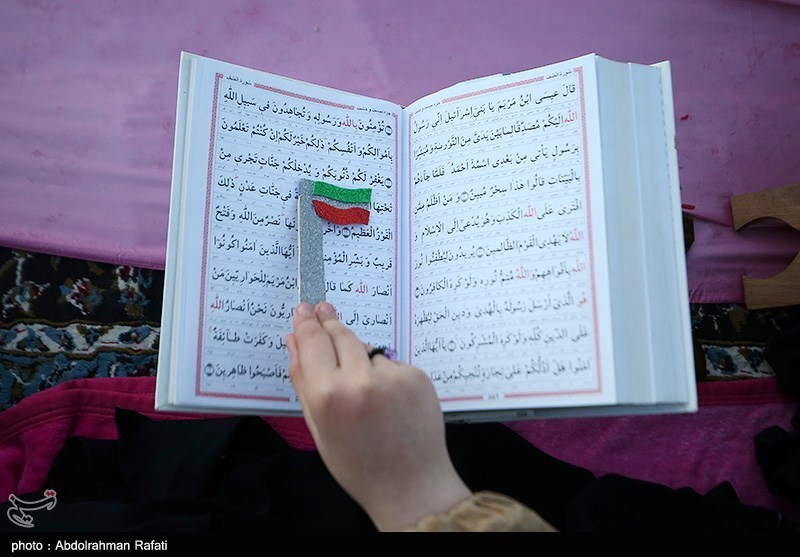 سُورَةُ الصَّفّ
قالَ عیسَی ابْنُ مَرْیَمَ یا بَنی اِسْرائیلَ اِنّی رَسُولُ
اللّٰهِ اِلَیْکُمْ مُصَدِّقًا لِما بَیْنَ یَدَیَّ مِنَ التَّوْریةِ وَ مُبَشِّرًا
بِرَسُولٍ یَأْتی مِنْ بَعْدِی اسْمُهُ اَحْمَدُ فَلَمّا جاءَهُمْ
بِالْبَیِّناتِ قالُوا هذا سِحْرٌ مُبینٌ وَ مَنْ اَظْلَمُ مِمَّنِ
افْتَری عَلَی اللّٰهِ الْکَذِبَ وَ هُوَ یُدْعی اِلَی الْاِسْلامِ وَ
اللّٰهُ لا یَهْدِی الْقَوْمَ الظّالِمینَ یُریدُونَ لِیُطْفِئُوا نُورَ
اللّٰهِ بِاَفْواهِهِمْ وَ اللّٰهُ مُتِمُّ نُورِهِ وَ لَوْ کَرِهَ الْکافِرُونَ
هُوَ الَّذی اَرْسَلَ رَسُولَهُ بِالْهُدی وَ دینِ الْحَقِّ لِیُظْهِرَهُ
عَلَی الدّینِ کُلِّهِ وَ لَوْ کَرِهَ الْمُشْرِکُونَ یا اَیُّهَا الَّذینَ
امَنُوا هَلْ اَدُلُّکُمْ عَلی تِجارَةٍ تُنْجیکُمْ مِنْ
سُورَةُ الصَّفّ
تُؤْمِنُونَ بِاللّٰهِ وَ رَسُولِهِ وَ تُجاهِدُونَ فی سَبیلِ اللّٰهِ
بِاَمْوالِکُمْ وَ اَنْفُسِکُمْ ذلِکُمْ خَیْرٌ لَکُمْ اِنْ کُنْتُمْ تَعْلَمُونَ
یَغْفِرْ لَکُمْ ذُنُوبَکُمْ وَ یُدْخِلْکُمْ جَنّاتٍ تَجْری مِنْ
تَحْتِهَا فی جَنّاتِ عَدْنٍ ذلِکَ
الْفَوْزُ الْعَظیمُ نَصْرٌ مِنَ اللّٰهِ وَ فَتْحٌ
قَریبٌ وَ بَشِّرِ الْمُؤْمِ اَیُّهَا الَّذینَ امَنُوا کُونُوا
اَنْصارَ اللّٰهِ کَما قالَ ابْنُ مَرْیَمَ لِلْحَوارِیّینَ مَنْ
اَنْصاری اِلَی ارِیُّونَ نَحْنُ اَنْصارُ اللّٰهِ
وَ کَفَرَتْ طائِفَةٌ
فَاَصْبَحُوا ظاهِرینَ
تسنیم
photo : Abdolrahman Rafati